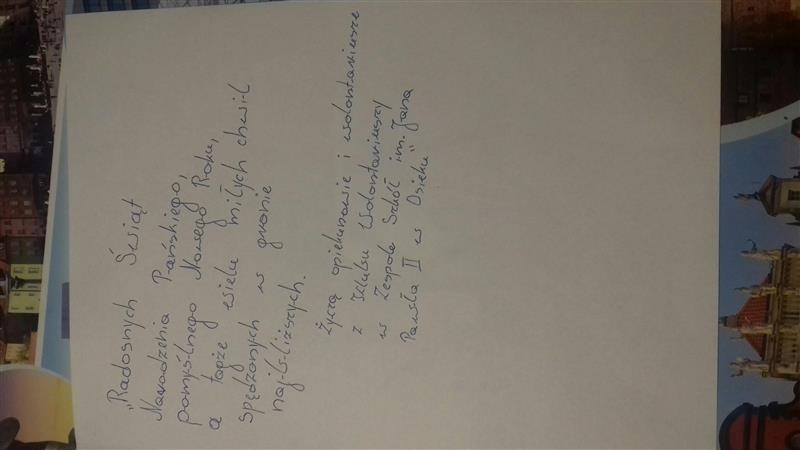 „Radosnych Świąt
Narodzenia Pańskiego,
pomyślnego Nowego Roku,
a tapże wielu miłych chwil
spędzonych w gronie
najbliższych.
życzą opiekunowie i wolontariusze
z Klubu Wolontariuszy
w Zespole Szkół im. Jana
Pawła II w Osieku"